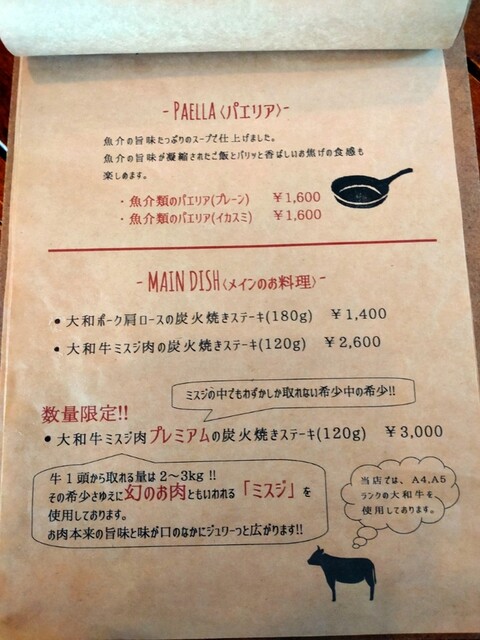 - PAELLA〈パエリア〉-
魚介の旨味たっぷりのスープで仕上げました。
魚介の旨味が凝縮されたご飯とパリッと香ばしいお焦げの食感も
楽しめます。
・魚介類のパエリア(プレーン) ￥1,600
・魚介類のパエリア(イカスミ) ￥1,600
- MAIN DISH〈メインのお料理〉-
• 大和ポーク肩ロースの炭火焼きステーキ(180g) ￥1,400
• 大和牛ミスジ肉の炭火焼きステーキ(120g) ￥2,600
ミスジの中でもわずかしか取れない希少中の希少!!
数量限定!!
• 大和牛ミスジ肉プレミアムの炭火焼きステーキ(120g) ￥3,000
牛１頭から取れる量は２〜３kg !!
その希少さゆえに幻のお肉ともいわれる「ミスジ」を
使用しております。
お肉本来の旨味と味が口のなかにジュワーっと広がります!!
当店では、A4,A5
ランクの大和牛を
使用しております。